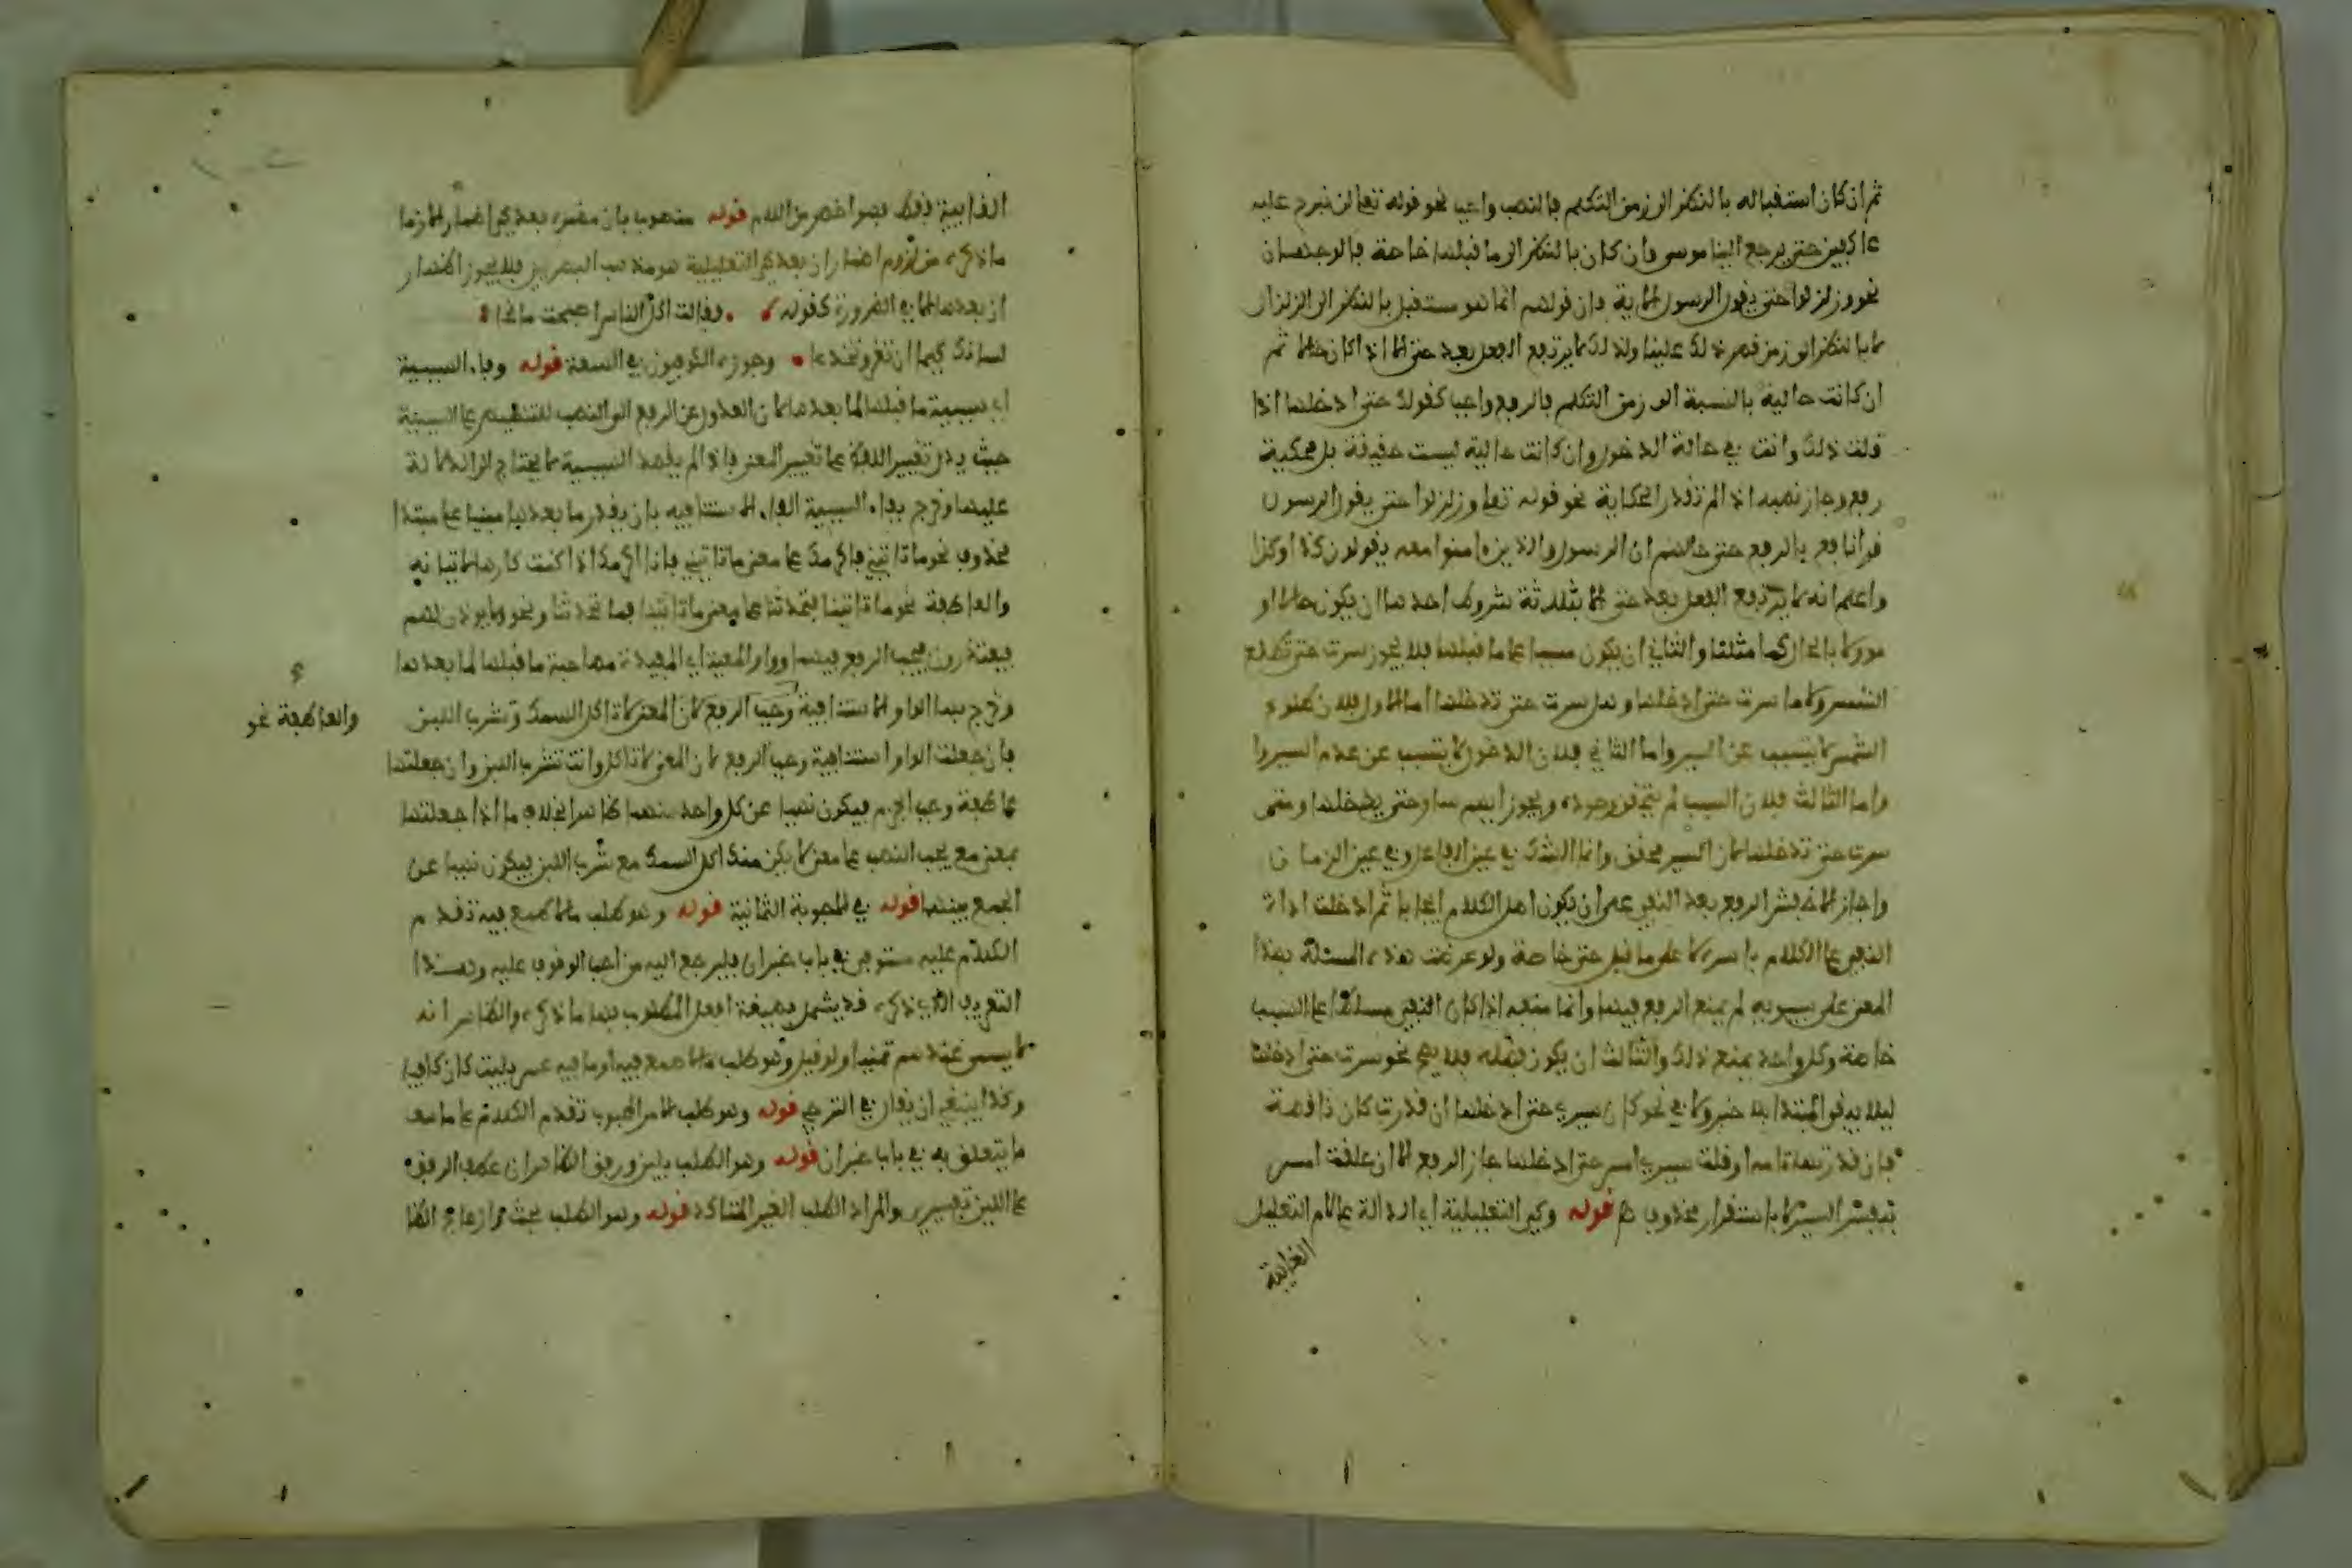 ثم ان كان استقباله بالنظر الى زمن التكلم فالنصب واجب نحو قوله تعلى لن نبرح عليه
عاكفين حتى يرجع الينا موسى وان كان بالنظر الى ما قبلها خاصة فالوجهان
نحو وزلزلوا حتى يقول الرسول الاية فان قولهم انما هو مستقبل بالنظر الى الزلزال
لا بالنظر الى زمن قص ذلك علينا ولذلك لا يرتفع الفعل بعد حتى الا اذا كان حالا ثم
ان كانت حالية بالنسبة الى زمن التكلم فالرفع واجب كقولك حتى ادخلها اذا
قلت ذلك وانت في حالة الدخول وان كانت حالية ليست حقيقة بل محكية
رفع وجاز نصبه اذا لم تقدر الحكاية نحو قوله تعلى وزلزلوا حتى يقول الرسول
قرا نافع بالرفع حتى حالتهم ان الرسول والذين ءامنوا معه يقولون كذا وكذا
واعلم انه لا يرتفع الفعل بعد حتى الا بثلاثة شروط احدها ان يكون حالا او
موولا بالحال كما مثلنا والثاني ان يكون مسببا عما قبلها فلا يجوز سرت حتى تطلع
الشمس ولا ما سرت حتى ادخلها وهل سرت حتى تدخلها اما الاول فلان طلوع
الشمس لا يتسبب عن السير واما الثاني فلان الدخول لا يتسبب عن عدم السير وا
واما الثالث فلان السبب لم يتحقق وجوده ويجوز ايهم سار حتى يدخلها ومتى
سرت حتى تدخلها لان السير محقق وانما الشك في عين الفاعل وفي عين الزمان
واجاز الاخفش الرفع بعد النفي على ان يكون اصل الكلام ايجابا ثم ادخلت اداة
النفي على الكلام باسره لا على ما قبل حتى خاصة ولو عرضت هذه المسئلة بهذا
المعنى على سيبويه لم يمنع الرفع فيها وانما منعه اذا كان النفي مسلطا على السبب
خاصة وكل واحد يمنع ذلك والثالث ان يكون فضلة فلا يصح نحو سرت حتى ادخلها
ليلا يبقى المبتدا بلا خبر ولا في نحو كان سيري حتى ادخلها ان قدرت كان ناقصة
فان قدرتها تامة او قلت سيري امس حتى ادخلها جاز الرفع الا ان علقت امس
بنفس السير لا باستقرار محذوف قوله وكي التعليلية اي الدالة على لام التعليل
الغايية
الغايية فقط فهو اخص من اللام قوله منصوب بان مضمرة بعد كي اضمارا لازما
ما ذكره من لزوم اضمار ان بعد كي التعليلية هو مذهب البصريين فلا يجوز اظهار
ان بعدها الا في الضرورة كقوله وقالت اكل الناس اصبحت مانحا
لسانك كيما ان تغر وتخدعا وجوزه الكوفيون في السعة قوله وفاء السببية
اي سببية ما قبلها لما بعدها لان العدول عن الرفع الى النصب للتنصيص على السببية
حيث يدل تغيير اللفظ على تغيير المعنى فاذا لم يقصد السببية لا يحتاج الى الدلالة
عليها وخرج بفاء السببية الفاء الاستئنافية بان يقدر ما بعدها مبنيا على مبتدا
محذوف نحو ما تاتيني فاكرمك على معنى ما تاتيني فانا اكرمك اذا كنت كارها لاتيانه
والعاطفة نحو ما تاتينا فتحدثنا على معنى ما تاتينا فما تحدثنا ونحو ولا يوذن لهم
فيعتذرون فيجب الرفع فيهما وواو المعية اي المفيدة مصاحبة ما قبلها لما بعدها
وخرج بها الواو الاستئنافية وجب الرفع لان المعنى لا تاكل السمك وتشرب اللبن
والعاطفة نحو
فان جعلت الواو استئنافية وجب الرفع لان المعنى لا تاكل وانت تشرب اللبن وان جعلتها
عاطفة وجب الجزم فيكون نهيا عن كل واحد منهما ظاهرا بخلاف ما اذا جعلتها
بمعنى مع يجب النصب على معنى لا يكن منك اكل السمك مع شرب اللبن فيكون نهيا عن
الجمع بينهما قوله في الاجوبة الثمانية قوله وهو طلب ما لا طمع فيه تقدم
الكلام عليه مستوفى في باب خبر ان فليرجع اليه من احب الوقوف عليه وهذا
التعريف الذي ذكره قد يشمل صيغة افعل المطلوب بها ما ذكره والظاهر انه
لا يسمى عندهم تمنيا ولو قيل وهو طلب ما لا طمع فيه او ما فيه عسر بليت كان كافيا
وكذا ينبغي ان يقال في الترجي قوله وهو طلب الامر المحبوب تقدم الكلام على ما معه
ما يتعلق به في باب خبر ان قوله وهو الطلب بلين ورفق الظاهر ان عطف الرفق
على اللين تفسيري والمراد الطلب الغير المتاكد قوله وهو الطلب بحث وازعاج الظا